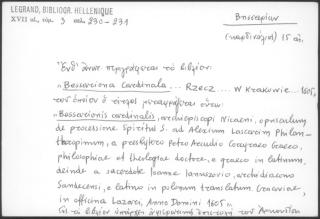 LEGRAND, BIBLIOGR. HELLENIQUE
XVII αἰ., τόμ. 3 σελ. 230-231
Βησσαρίων
(καρδινάλιος) 15 αἰ.
Ἐνθ' ἄνωτ. περιγράφεται τὸ βιβλίον:
"Bessariona Cardinala... RZECZ.... W Krakowie... 1605,
τοῦ ὁποίου ὁ τίτλος μεταφράζεται οὕτω:
"Bessarionis cardinalis, archiepiscopi Nicaeni, opusculum
de processione Spiritus S. ad Alexium Lascarim Philan-
thropinum, a presbytero Petro Arcudio Corcyraeo Graeco,
philosophiae et theologiae doctore, e graeco in latinum,
deinde a sacerdote Ioanne Ianussovio, archidiacono
Sandecensi, e latino in polonum translatum. Cracoviae,
in officina Lazari, Anno Domini 1605".
τὸ βιβλίον